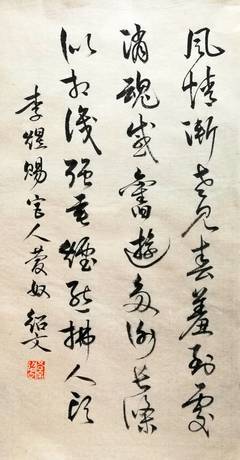 風情漸老見春羞到處
消魂感舊遊多謝長條
似相識强垂煙態拂人頭
李煜賜宮人慶奴 紹文